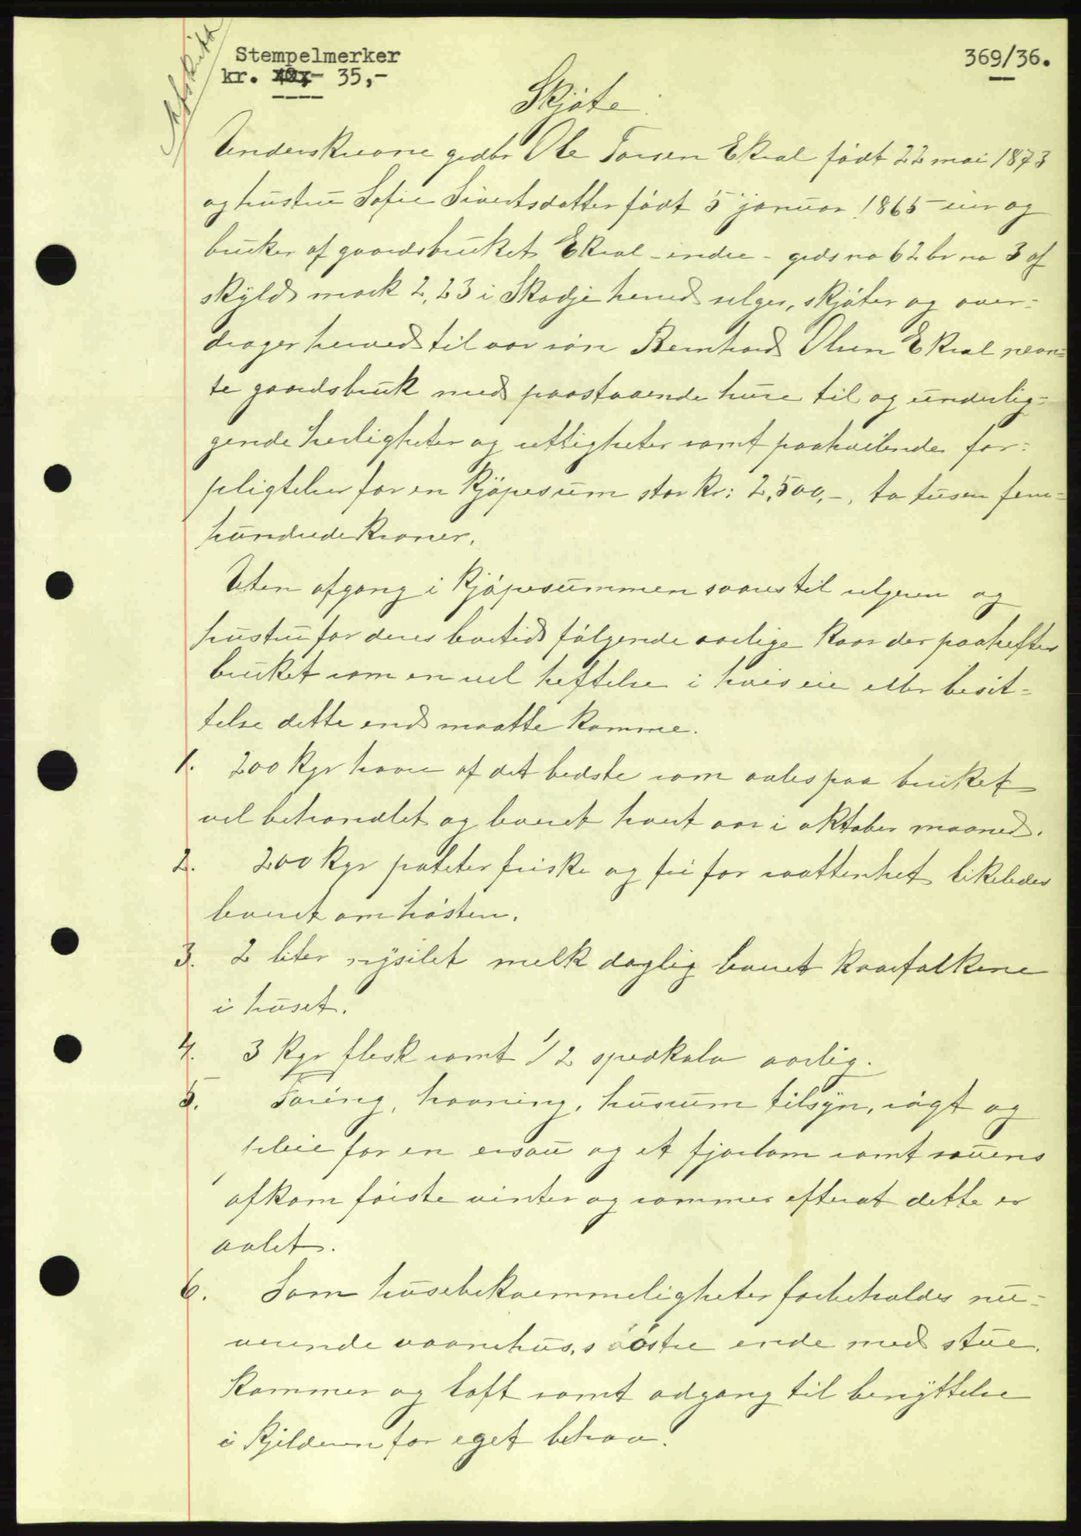 Afskrift
Stempelmerker
369/36.
kr. 40,- 35,-
Skjøte
Underskrevne gaardbr Ole Torsen Ekral født 22 mai 1873
og hustru Sofie Sivertsdatter født 5 januar 1865 eier og
bruker af gaardsbruket Ekral-indre- gards no 62 br no 3 af
skyld mark 2,23 i Skodje herred selger, skjøter og over-
drager herved til vor søn Bernhard Olsen Ekral nevn-
te gaardsbruk med paastaaende huse til og underlig-
gende herligheter og rettigheter samt paahvilende for-
pligtelser for en kjøpesum stor kr: 2,500,-, to tusen fem-
hundrede kroner.
Uten afgang i kjøpesummen svares til selgeren og
hustru for deres levetid følgende aarlige kaar der paahefter
bruket som en reel heftelse i hvis eie eller besit-
telse dette end maatte komme.
1. 200 kgr havre af det bedste som avles paa bruket
vel behandlet og levert hvert aar i oktober maaned.
2. 200 kgr poteter friske og fri for raattenhet likeledes
levert om høsten.
3. 2 liter nysilet melk daglig levert kaarfolkene
i huset.
4. 3 kgr flesk samt 1/2 spedkalv aarlig.
5. Foring, havning, husrum tilsyn, røgt og
pleie for en ersau og et fjorlam samt sauens
afkom første vinter og sommer efterat dette er
avlet.
6. Som husebekvemmeligheter forbeholdes nu-
verende vaanehus,s østre ende med stue.
kammer og loft samt adgang til benyttelse
i kjelderen for eget behov.